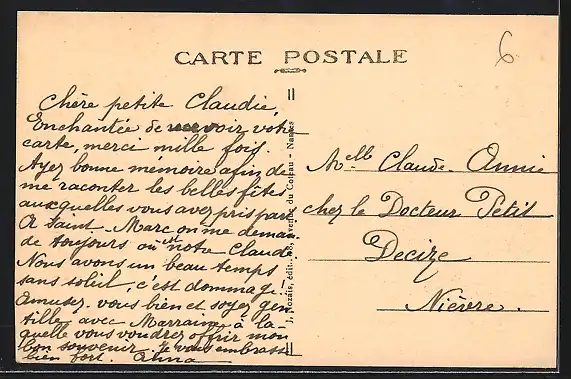 CARTE POSTALE
6
Chère petite Claudie,
Enchantée de recevoir votre
carte, merci mille fois.
Ayez bonne mémoire afin de
me raconter les belles fêtes
auxquelles vous avez pris part
A Saint Marc on me deman-
de toujours où est notre Claude
Nous avons un beau temps
sans soleil, c'est dommage!
Amusez-vous bien et soyez gen-
tille avec Marraine à la-
quelle vous voudrez offrir mon
bon souvenir. Je vous embrasse
bien fort. Anna
J. Nozais, édit., 48, Avenue du Coteau - Nantes
Melle Claude-Annie
chez le Docteur Petit
Decize
Nièvre.